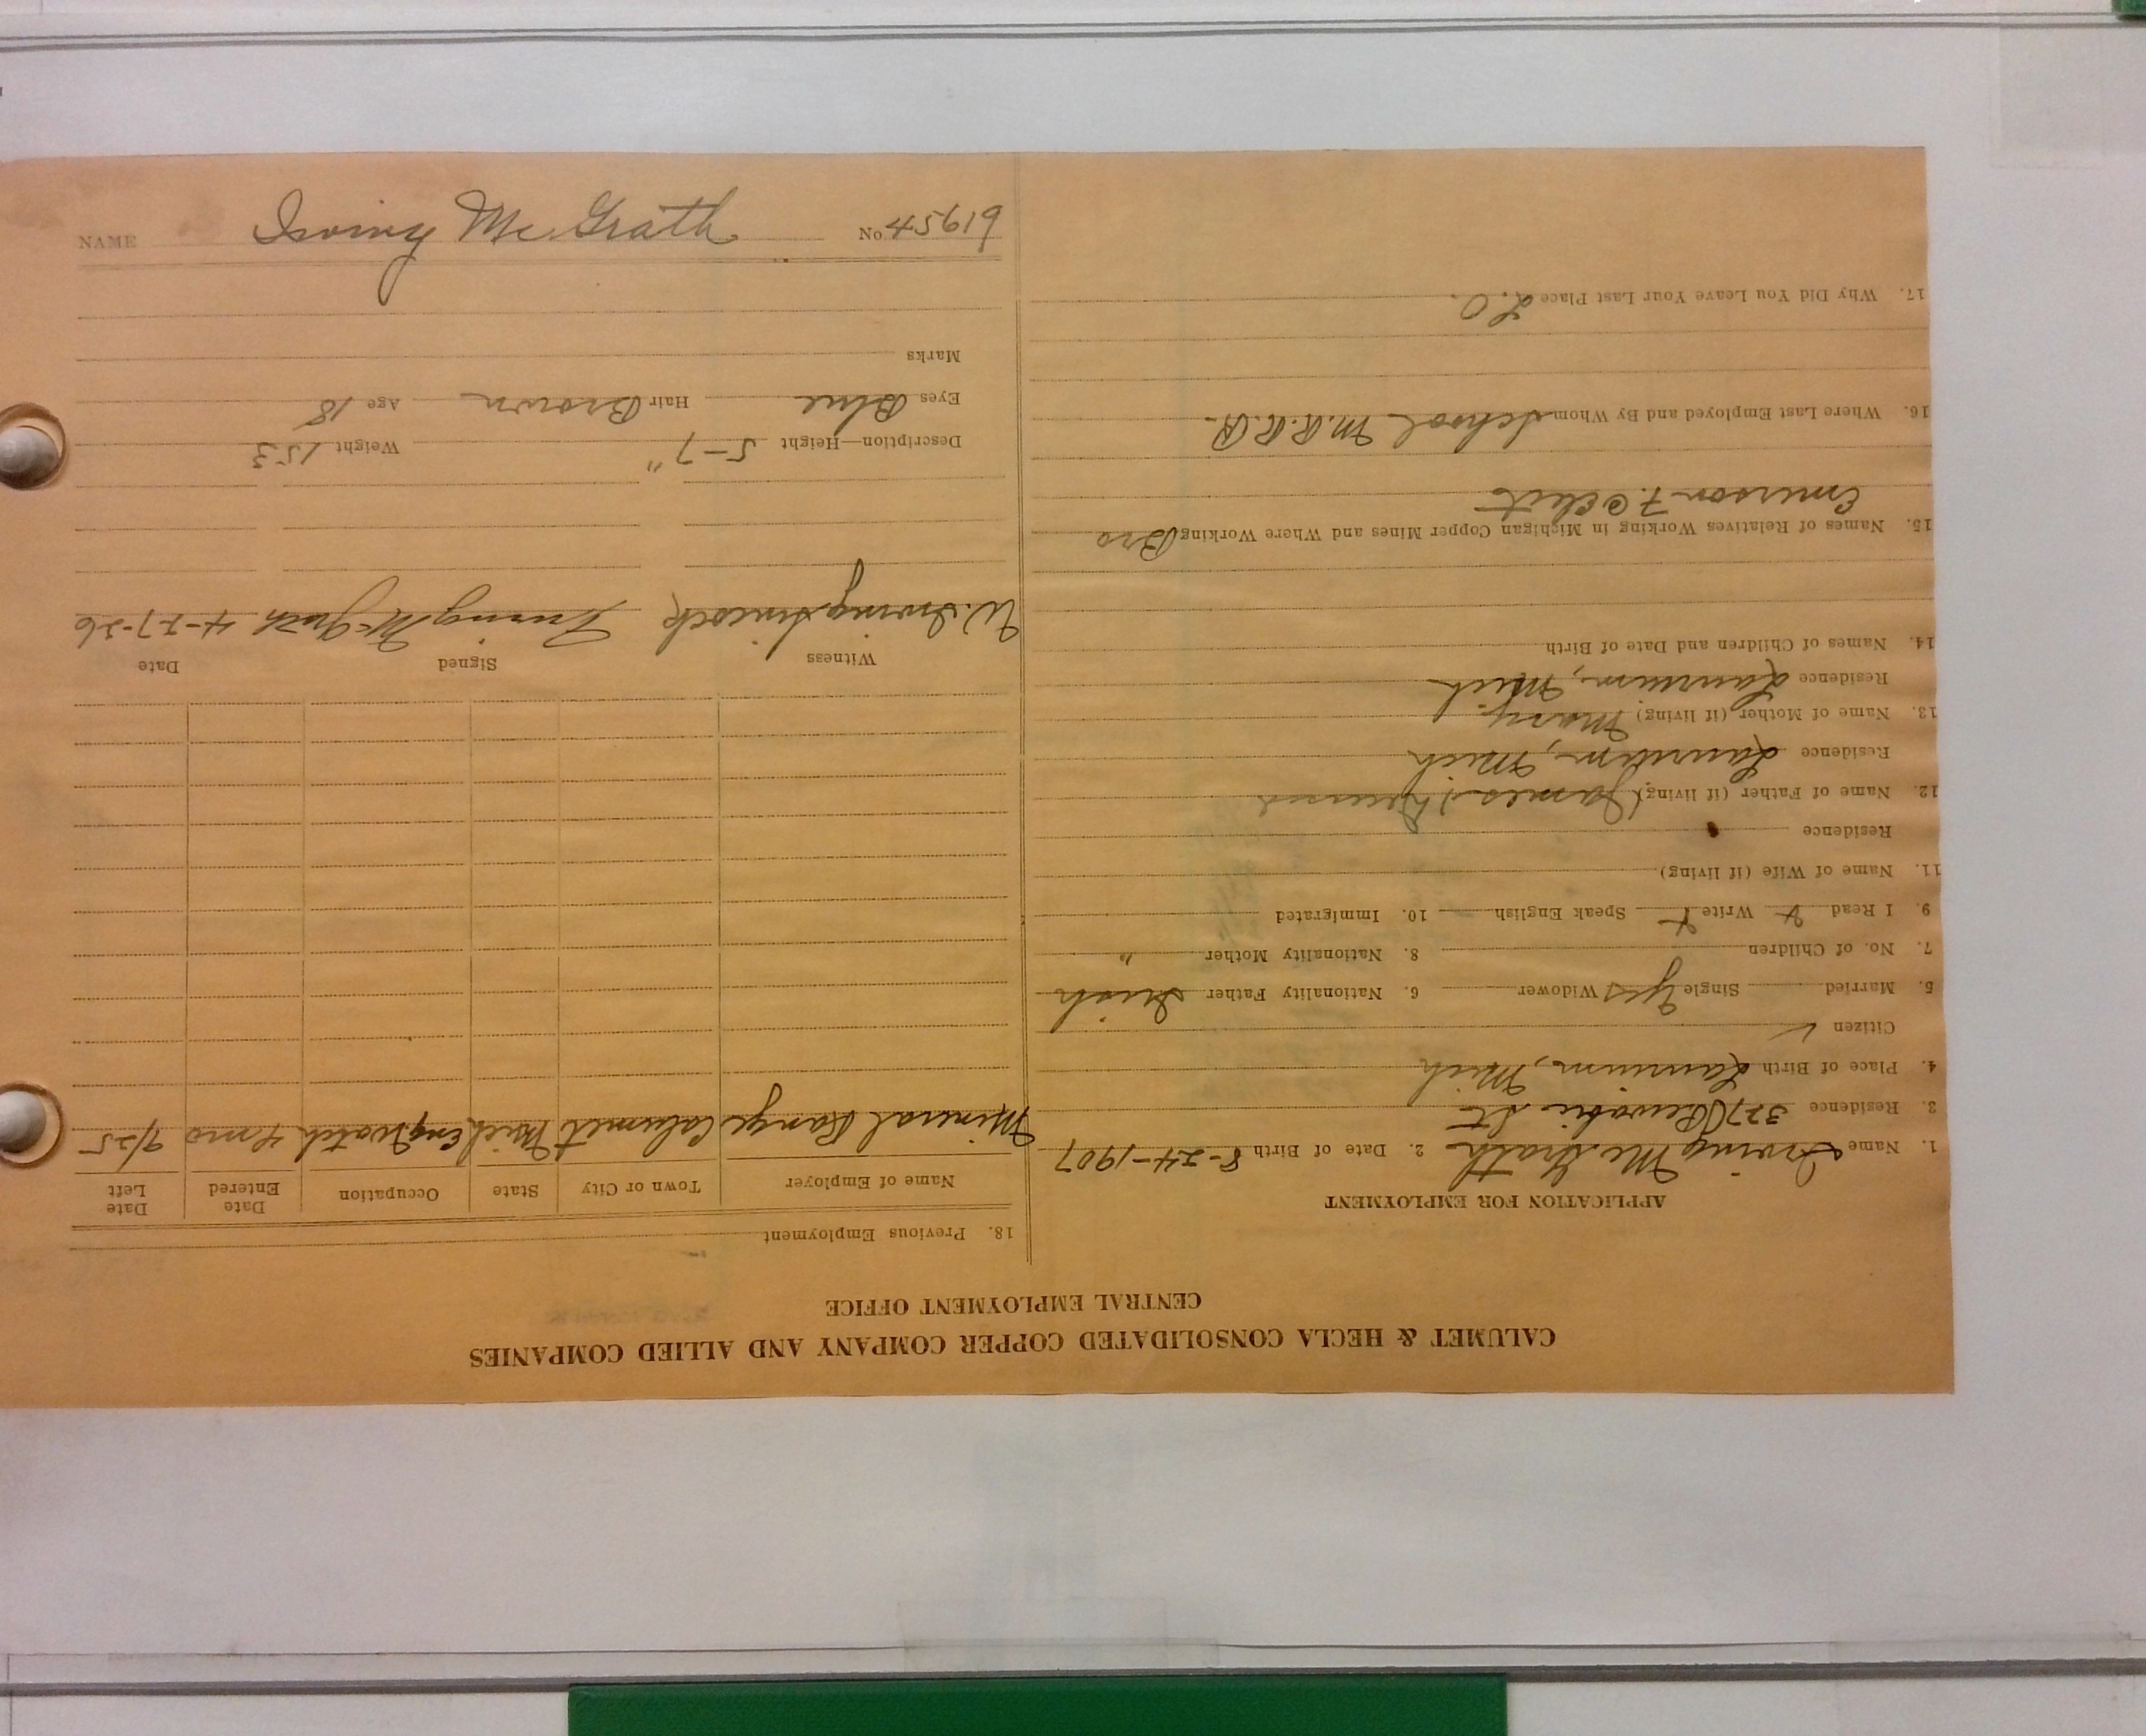 NAME Irving McGrath No 45619
CALUMET & HECLA CONSOLIDATED COPPER COMPANY AND ALLIED COMPANIES
CENTRAL EMPLOYMENT OFFICE
APPLICATION FOR EMPLOYMENT
1. Name Irving McGrath 2. Date of Birth 8-24-1907
3. Residence 327 Pewabic St
4. Place of Birth Laurium, Mich
Citizen ✓
5. Married Single Yes Widower 6. Nationality Father Irish
7. No. of Children 8. Nationality Mother "
9. I Read Write Speak English 10. Immigrated
11. Name of Wife (if living)
Residence
12. Name of Father (if living) (James) Deceased
Residence Laurium, Mich
13. Name of Mother (if living) Mary
Residence Laurium, Mich
14. Names of Children and Date of Birth
15. Names of Relatives Working in Michigan Copper Mines and Where Working Bro
Emerson F. @ Elect
16. Where Last Employed and By Whom School M.R.R.R.
17. Why Did You Leave Your Last Place L.O.
18. Previous Employment
Name of Employer Town or City State Occupation Date Entered Date Left
Mineral Range Calumet Mich Eng Watch 4 mo 9/25
Witness Signed Date
W. Irving Sincock Irving McGrath 4-27-26
Description—Height 5-7" Weight 153
Eyes Blue Hair Brown Age 18
Marks